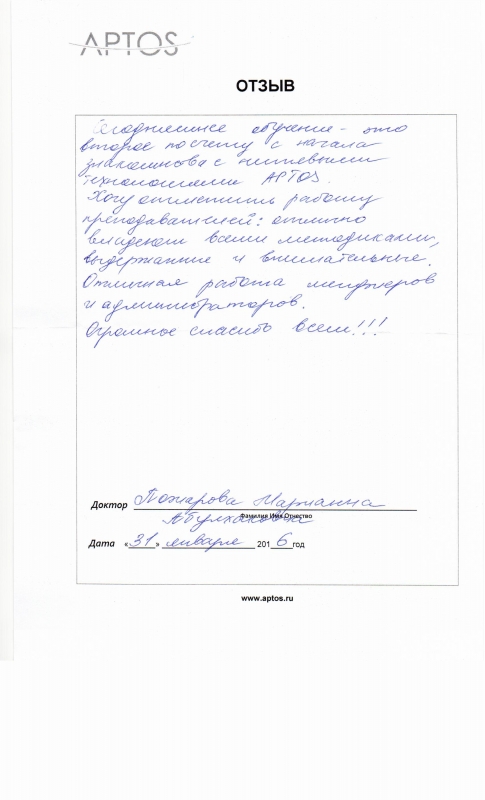 APTOS
ОТЗЫВ
Сегодняшнее обучение - это
второе по счету с начала
знакомства с нитевыми
технологиями APTOS.
Хочу отметить работу
преподавателей: отлично
владеют всеми методиками,
выдержанные и внимательные.
Отличная работа менджеров
и администраторов.
Огромное спасибо всем!!!
Доктор Пожарова Марианна
Фамилия Имя Отчество
Абулхаковна
Дата «31» января 2016 год
www.aptos.ru